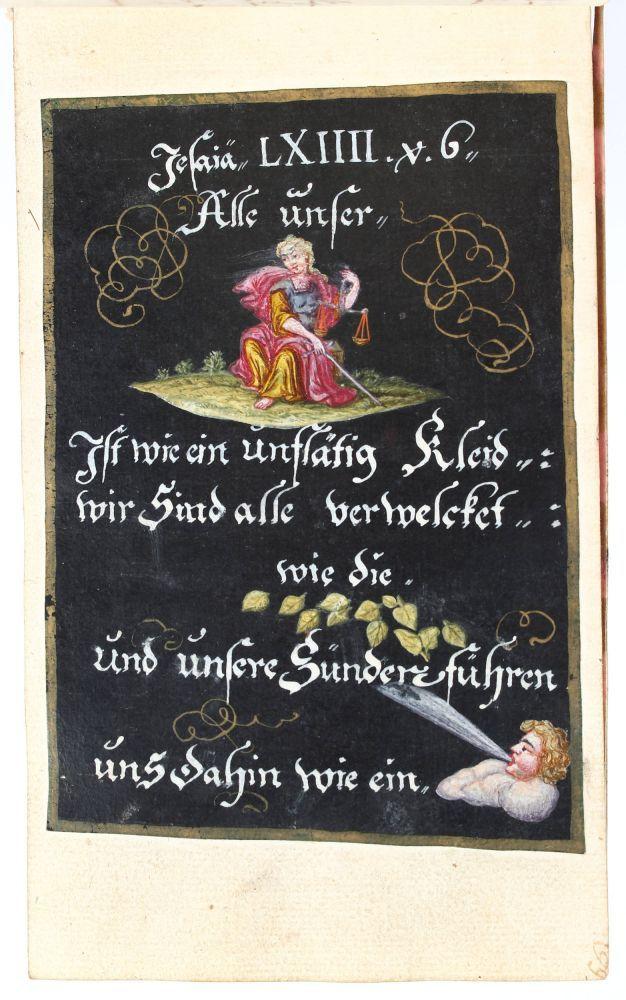 Jesaiä„ LXIIII. v. 6„
Alle ünser„
Ist wie ein ünflätig Kleid„:
wir Sind alle verwelcket„:
wie die.
ünd ünsere Sünden führen
üns dahin wie ein„